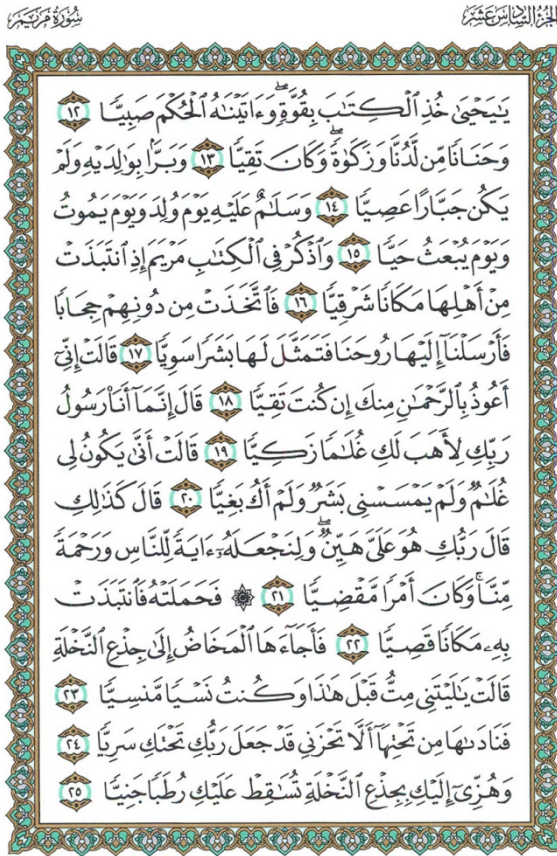 الجزء السادس عشر
سورة مريم
يَٰيَحْيَىٰ خُذِ ٱلْكِتَٰبَ بِقُوَّةٍۖ وَءَاتَيْنَٰهُ ٱلْحُكْمَ صَبِيًّا ١٢
وَحَنَانًا مِّن لَّدُنَّا وَزَكَوٰةًۖ وَكَانَ تَقِيًّا ١٣ وَبَرًّۢا بِوَٰلِدَيْهِ وَلَمْ
يَكُن جَبَّارًا عَصِيًّا ١٤ وَسَلَٰمٌ عَلَيْهِ يَوْمَ وُلِدَ وَيَوْمَ يَمُوتُ
وَيَوْمَ يُبْعَثُ حَيًّا ١٥ وَٱذْكُرْ فِى ٱلْكِتَٰبِ مَرْيَمَ إِذِ ٱنتَبَذَتْ
مِنْ أَهْلِهَا مَكَانًا شَرْقِيًّا ١٦ فَٱتَّخَذَتْ مِن دُونِهِمْ حِجَابًا
فَأَرْسَلْنَآ إِلَيْهَا رُوحَنَا فَتَمَثَّلَ لَهَا بَشَرًا سَوِيًّا ١٧ قَالَتْ إِنِّىٓ
أَعُوذُ بِٱلرَّحْمَٰنِ مِنكَ إِن كُنتَ تَقِيًّا ١٨ قَالَ إِنَّمَآ أَنَا۠ رَسُولُ
رَبِّكِ لِأَهَبَ لَكِ غُلَٰمًا زَكِيًّا ١٩ قَالَتْ أَنَّىٰ يَكُونُ لِى
غُلَٰمٌ وَلَمْ يَمْسَسْنِى بَشَرٌ وَلَمْ أَكُ بَغِيًّا ٢٠ قَالَ كَذَٰلِكِ
قَالَ رَبُّكِ هُوَ عَلَىَّ هَيِّنٌۖ وَلِنَجْعَلَهُۥٓ ءَايَةً لِّلنَّاسِ وَرَحْمَةً
مِّنَّاۚ وَكَانَ أَمْرًا مَّقْضِيًّا ٢١ ۞ فَحَمَلَتْهُ فَٱنتَبَذَتْ
بِهِۦ مَكَانًا قَصِيًّا ٢٢ فَأَجَآءَهَا ٱلْمَخَاضُ إِلَىٰ جِذْعِ ٱلنَّخْلَةِ
قَالَتْ يَٰلَيْتَنِى مِتُّ قَبْلَ هَٰذَا وَكُنتُ نَسْيًا مَّنسِيًّا ٢٣
فَنَادَىٰهَا مِن تَحْتِهَآ أَلَّا تَحْزَنِى قَدْ جَعَلَ رَبُّكِ تَحْتَكِ سَرِيًّا ٢٤
وَهُزِّىٓ إِلَيْكِ بِجِذْعِ ٱلنَّخْلَةِ تُسَٰقِطْ عَلَيْكِ رُطَبًا جَنِيًّا ٢٥